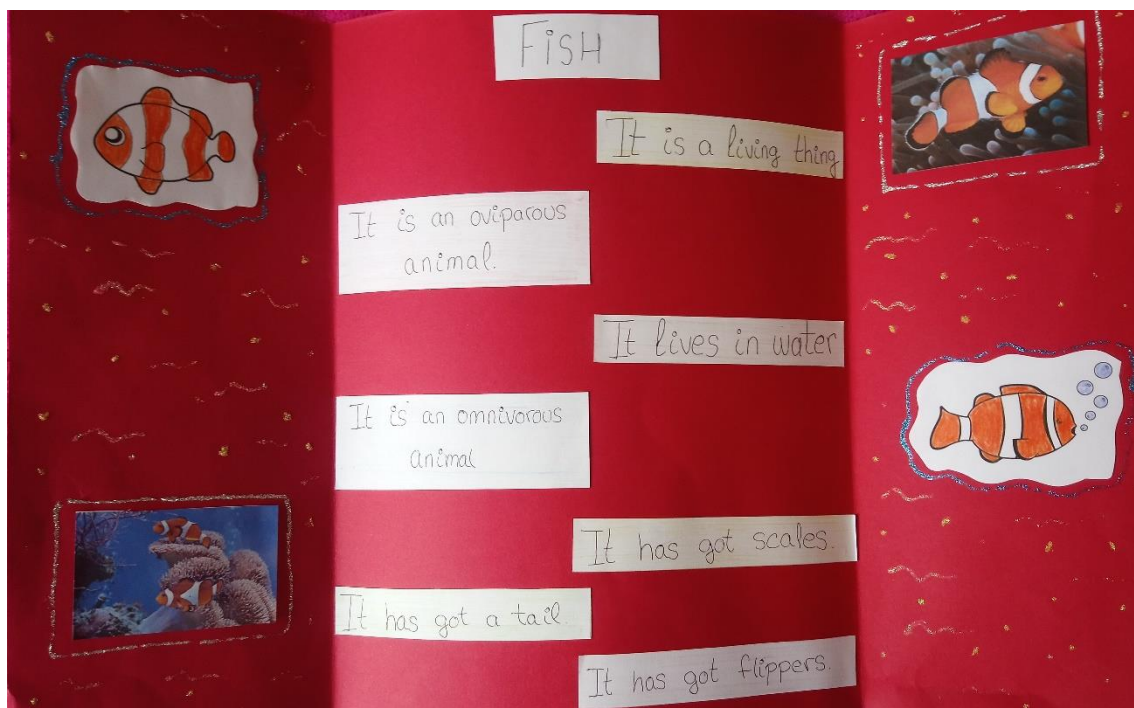 FiSH
It is a living thing
It is an oviparous
animal.
It lives in water
It is an omnivorous
animal
It has got scales.
It has got a tail.
It has got flippers.